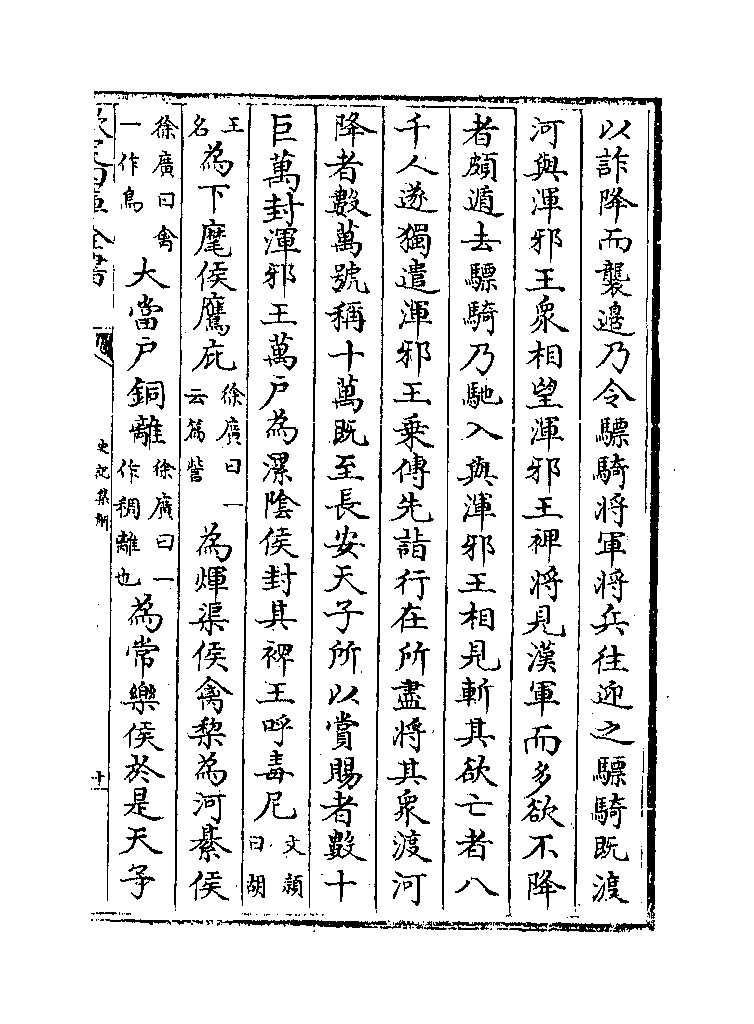 以詐降而襲邉乃令驃騎將軍將兵往迎之驃騎既渡
河與渾邪王衆相望渾邪王裨將見漢軍而多欲不降
者頗遁去驃騎乃馳入與渾邪王相見斬其欲亡者八
千人遂獨遣渾邪王乗傳先詣行在所盡將其衆渡河
降者數萬號稱十萬既至長安天子所以賞賜者數十
巨萬封渾邪王萬户為漯隂侯封其裨王呼毒尼文頴曰胡
王名為下麾侯鷹庇徐廣曰一云篇訾為煇渠侯禽棃為河綦侯
徐廣曰禽一作烏大當户銅離徐廣曰一作稠離也為常樂侯於是天子
欽定四庫全書
史記集解
十